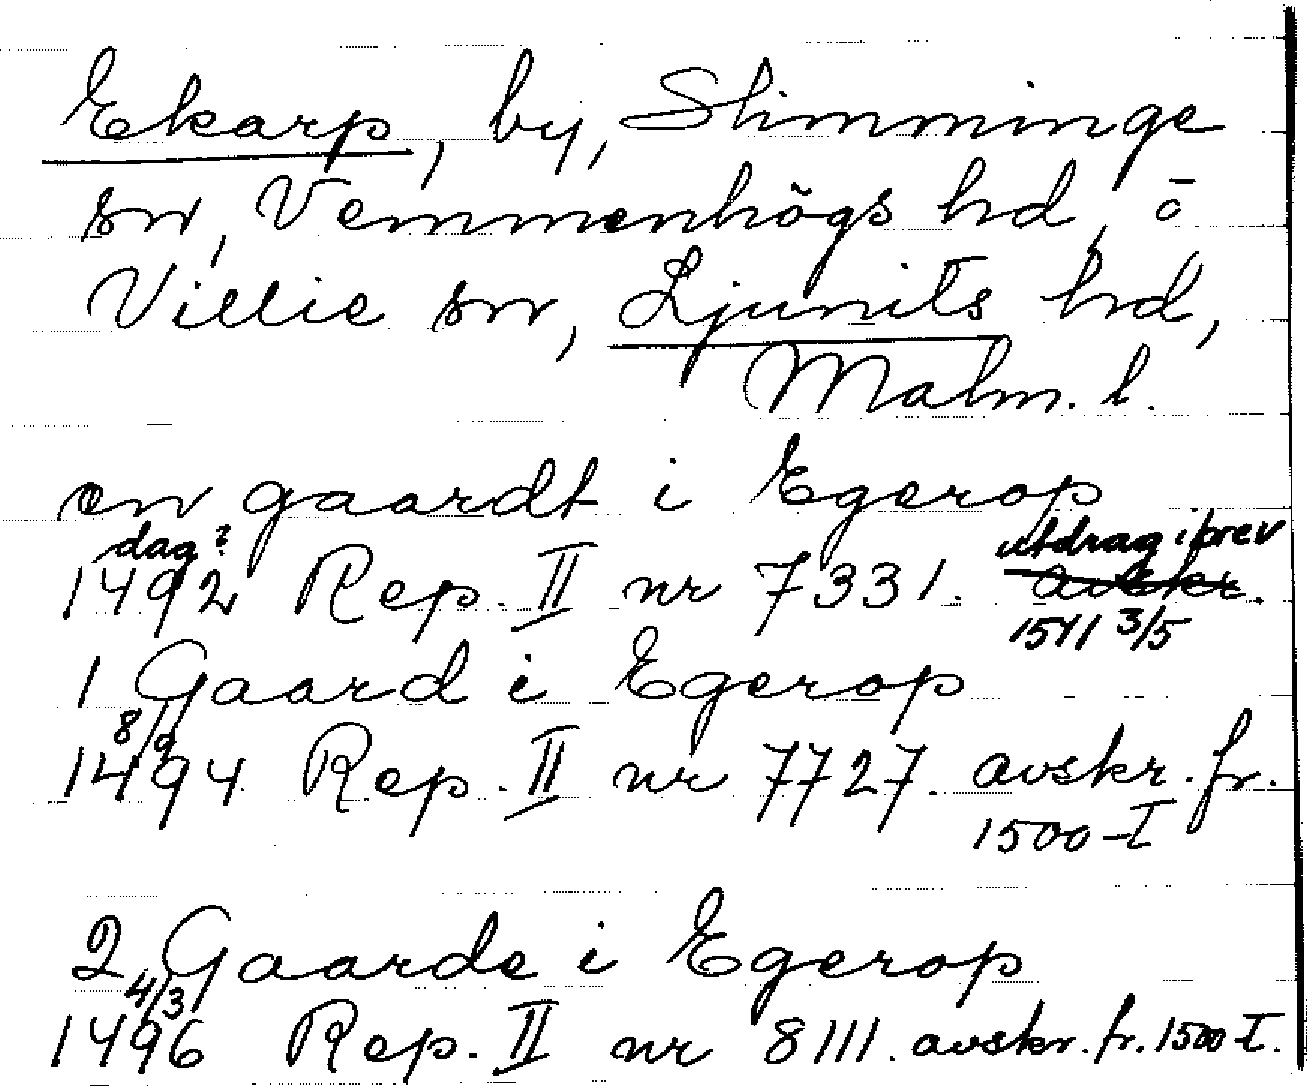 Ekarp, by, Slimminge
sn, Vemmenhögs hd, o
Villie sn, Ljunits hd,
Malm. l.
en gaardt i Egerop
dag? utdrag i brev
1492 Rep. II nr 7331. avskr.
1511 3/5
1 Gaard i Egerop
8/9
1494 Rep. II nr 7727. avskr. fr.
1500-T
2 Gaarde i Egerop
4/3
1496 Rep. II nr 8111. avskr. fr. 1500-T.